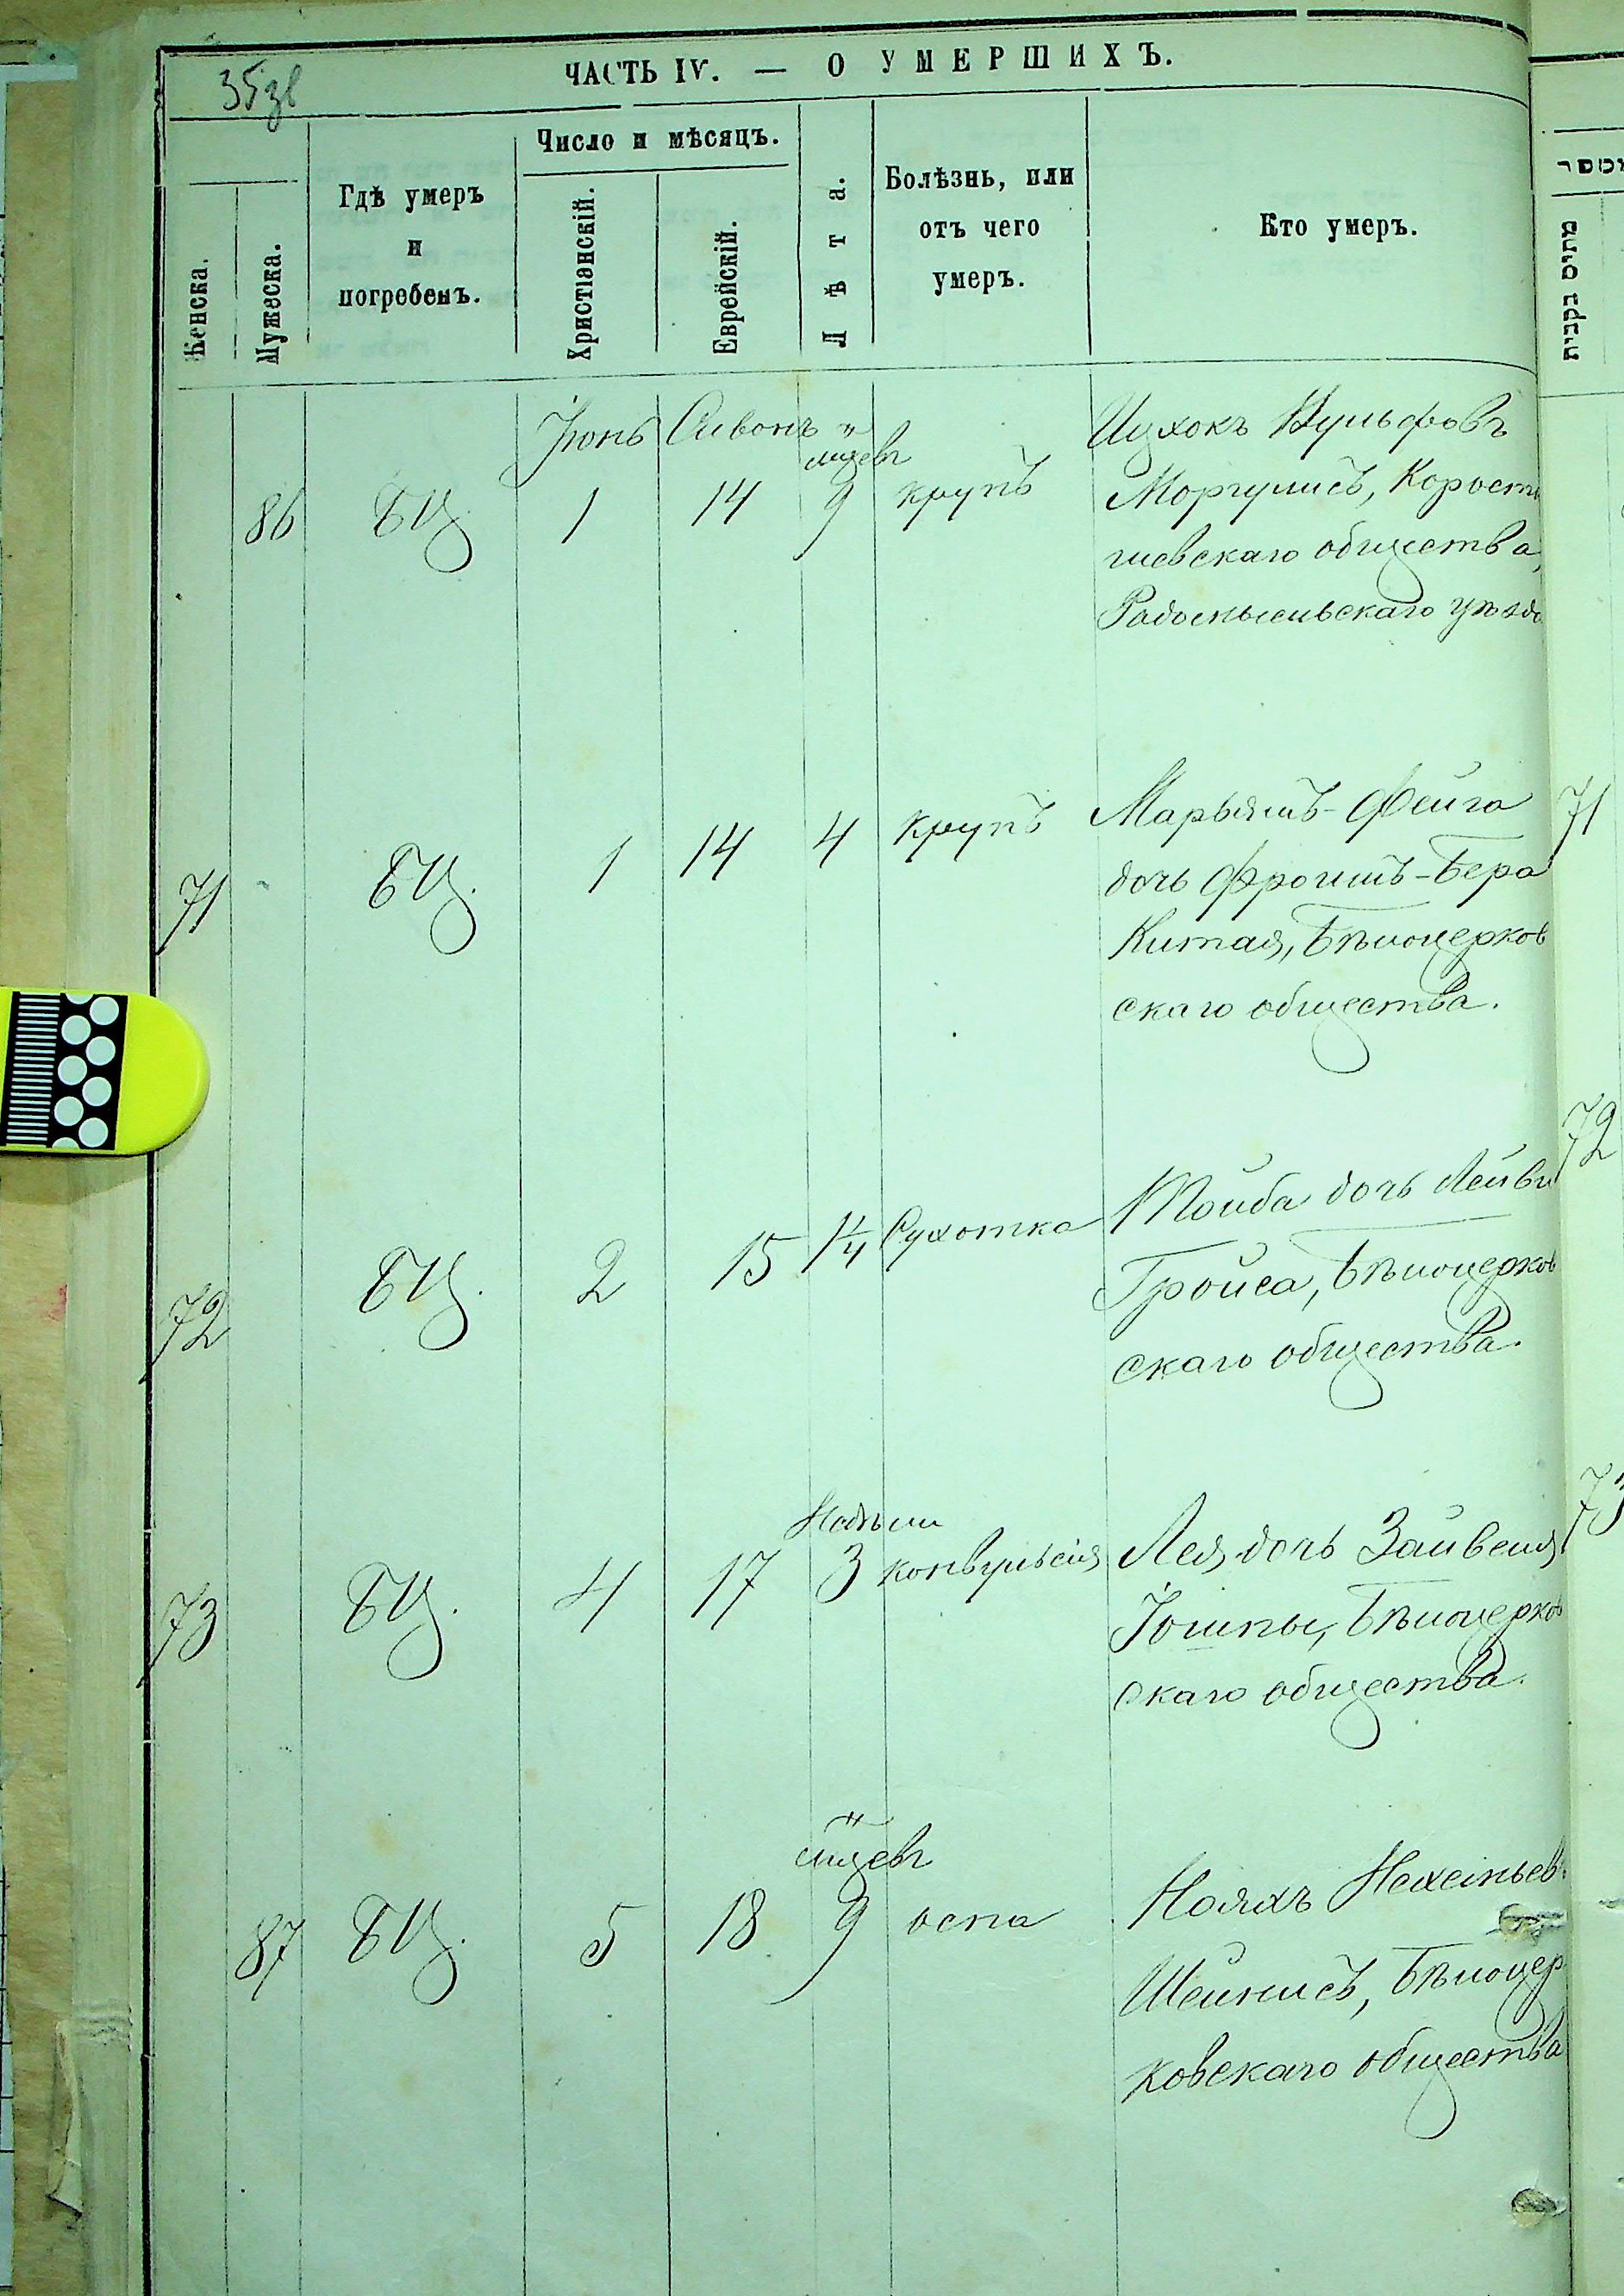 35зв
ЧАСТЬ IV. — О УМЕРШИХЪ.
Женска.
Мужеска.
Гдѣ умеръ
и
погребенъ.
Число и мѣсяцъ.
Христіанскій.
Еврейскій.
Лѣта.
Болѣзнь, или
отъ чего
умеръ.
Кто умеръ.
מספר
Іюнь Сивонъ
86 БЦ. 1 14 9 крупъ
Ицхокъ Вульфовъ
Моргулисъ, Корости
шевскаго общества,
Радомысльскаго уѣзда
71 БЦ. 1 14 4 крупъ
Марьямъ-Фейга
дочь Фроимъ-Бера
Китая, Бѣлоцерков
скаго общества.
71
72 БЦ. 2 15 1¼ Сухотка
Тойба дочь Лейви
Гройса, Бѣлоцерков
скаго общества.
72
Недѣли
73 БЦ. 4 17 3 конвульсія
Лея дочь Зайвеля
Іошпы, Бѣлоцерков
скаго общества.
73
87 БЦ. 5 18 9 оспа
Нояхъ
Шейнисъ, Бѣлоцер
ковскаго общества